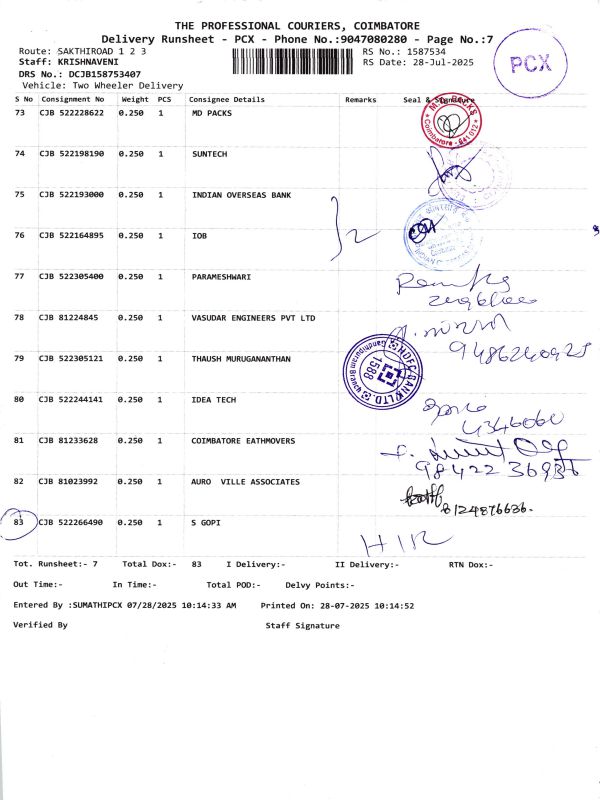 THE PROFESSIONAL COURIERS, COIMBATORE
Delivery Runsheet - PCX - Phone No.:9047080280 - Page No.:7
Route: SAKTHIROAD 1 2 3 RS No.: 1587534
Staff: KRISHNAVENI RS Date: 28-Jul-2025
DRS No.: DCJB158753407
Vehicle: Two Wheeler Delivery
PCX
S No Consignment No Weight PCS Consignee Details Remarks Seal & Signature
73 CJB 522228622 0.250 1 MD PACKS
Coimbatore - 641 012
74 CJB 522198190 0.250 1 SUNTECH
75 CJB 522193000 0.250 1 INDIAN OVERSEAS BANK
76 CJB 522164895 0.250 1 IOB
2
77 CJB 522305400 0.250 1 PARAMESHWARI
78 CJB 81224845 0.250 1 VASUDAR ENGINEERS PVT LTD
9486240925
79 CJB 522305121 0.250 1 THAUSH MURUGANANTHAN
HDFC BANK LTD. Gandhipuram Branch 1588
80 CJB 522244141 0.250 1 IDEA TECH
4346060
81 CJB 81233628 0.250 1 COIMBATORE EATHMOVERS
9842236936
82 CJB 81023992 0.250 1 AURO VILLE ASSOCIATES
8124876636.
83 CJB 522266490 0.250 1 S GOPI
Tot. Runsheet:- 7 Total Dox:- 83 I Delivery:- II Delivery:- RTN Dox:-
Out Time:- In Time:- Total POD:- Delvy Points:-
Entered By :SUMATHIPCX 07/28/2025 10:14:33 AM Printed On: 28-07-2025 10:14:52
Verified By Staff Signature